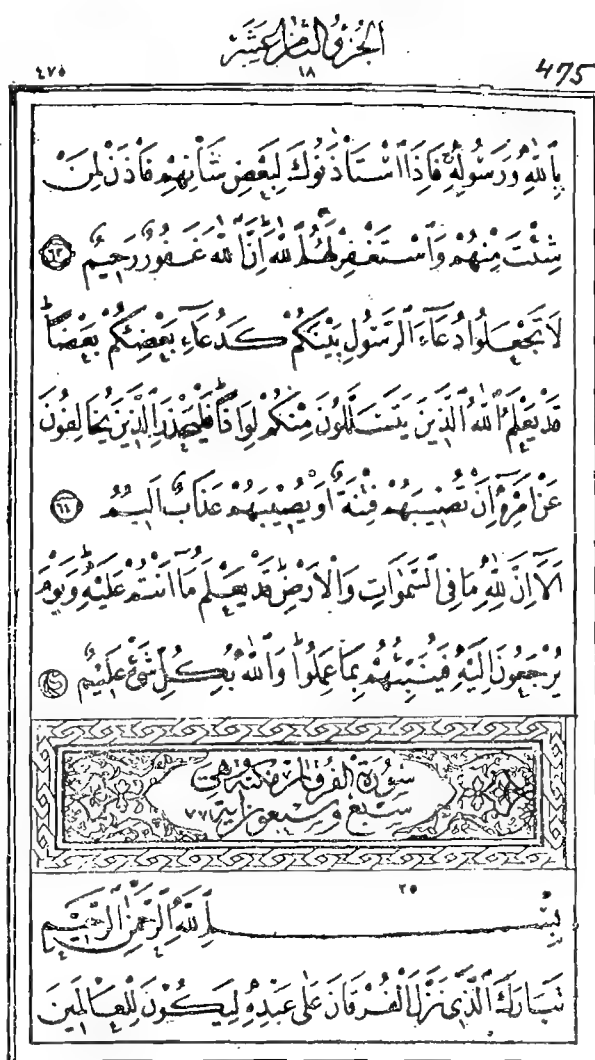 الجزؤ الثامن عشر
٤٧٥ ١٨ 475
بِاللّٰهِ وَرَسُولِهِۚ فَاِذَا اسْتَأْذَنُوكَ لِبَعْضِ شَأْنِهِمْ فَأْذَنْ لِمَنْ
شِئْتَ مِنْهُمْ وَاسْتَغْفِرْ لَهُمُ اللّٰهَۜ اِنَّ اللّٰهَ غَفُورٌ رَحِيمٌ ٦٣
لَا تَجْعَلُوا دُعَاءَ الرَّسُولِ بَيْنَكُمْ كَدُعَاءِ بَعْضِكُمْ بَعْضًاۜ
قَدْ يَعْلَمُ اللّٰهُ الَّذِينَ يَتَسَلَّلُونَ مِنْكُمْ لِوَاذًاۚ فَلْيَحْذَرِ الَّذِينَ يُخَالِفُونَ
عَنْ اَمْرِهِٓ اَنْ تُصِيبَهُمْ فِتْنَةٌ اَوْ يُصِيبَهُمْ عَذَابٌ اَلِيمٌ ٦٤
اَلَٓا اِنَّ لِلّٰهِ مَا فِي السَّمٰوَاتِ وَالْاَرْضِۜ قَدْ يَعْلَمُ مَٓا اَنْتُمْ عَلَيْهِۜ وَيَوْمَ
يُرْجَعُونَ اِلَيْهِ فَيُنَبِّئُهُمْ بِمَا عَمِلُواۜ وَاللّٰهُ بِكُلِّ شَيْءٍ عَلِيمٌ
سورة الفرقان مكية وهي
سبع وسبعون اية ٧٧
٢٥
بِسْمِ اللّٰهِ الرَّحْمٰنِ الرَّحِيمِ
تَبَارَكَ الَّذِي نَزَّلَ الْفُرْقَانَ عَلٰى عَبْدِهِ لِيَكُونَ لِلْعَالَمِينَ